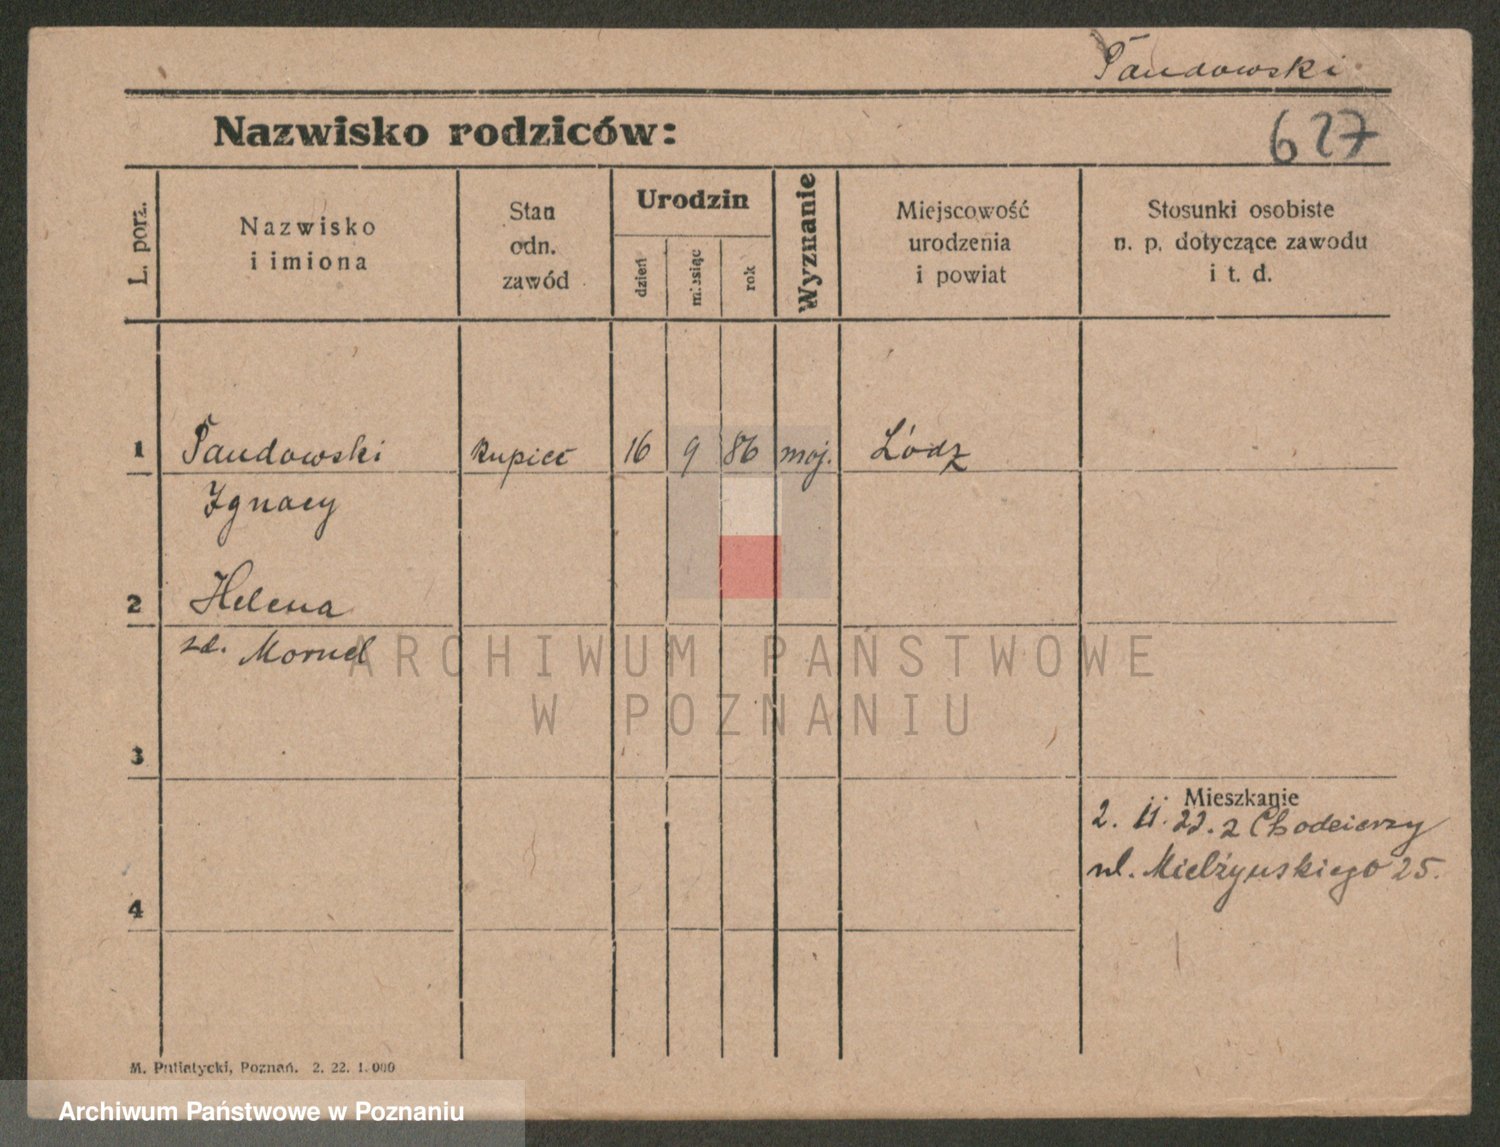 Tandowski
Nazwisko rodziców:
627
L. porz.
Nazwisko
i imiona
Stan
odn.
zawód
Urodzin
dzień
miesiąc
rok
Wyznanie
Miejscowość
urodzenia
i powiat
Stosunki osobiste
n. p. dotyczące zawodu
i t. d.
1 Tandowski kupiec 16 9 86 moj. Łódz
Ignacy
2 Helena
zd. Mornel
ARCHIWUM PAŃSTWOWE
W POZNANIU
3
Mieszkanie
2. II. 22. z Chodzierzy
ul. Mielżynskiego 25.
4
M. Putiatycki, Poznań. 2. 22. 1.000
Archiwum Państwowe w Poznaniu